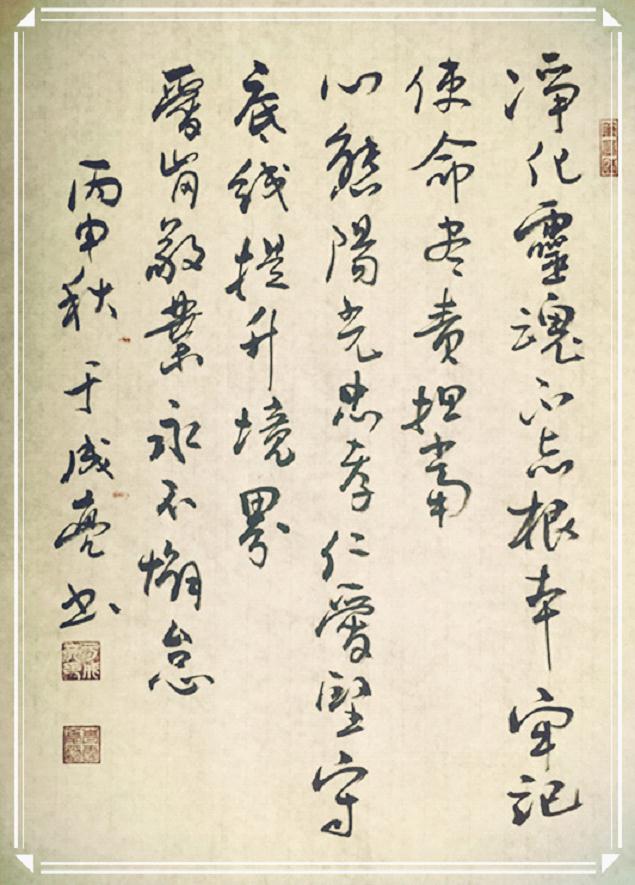 淨化靈魂不忘根本牢記
使命尽責担當
心態陽光忠孝仁愛堅守
底线提升境界
愛岗敬業永不懈怠
丙申秋于成亮书